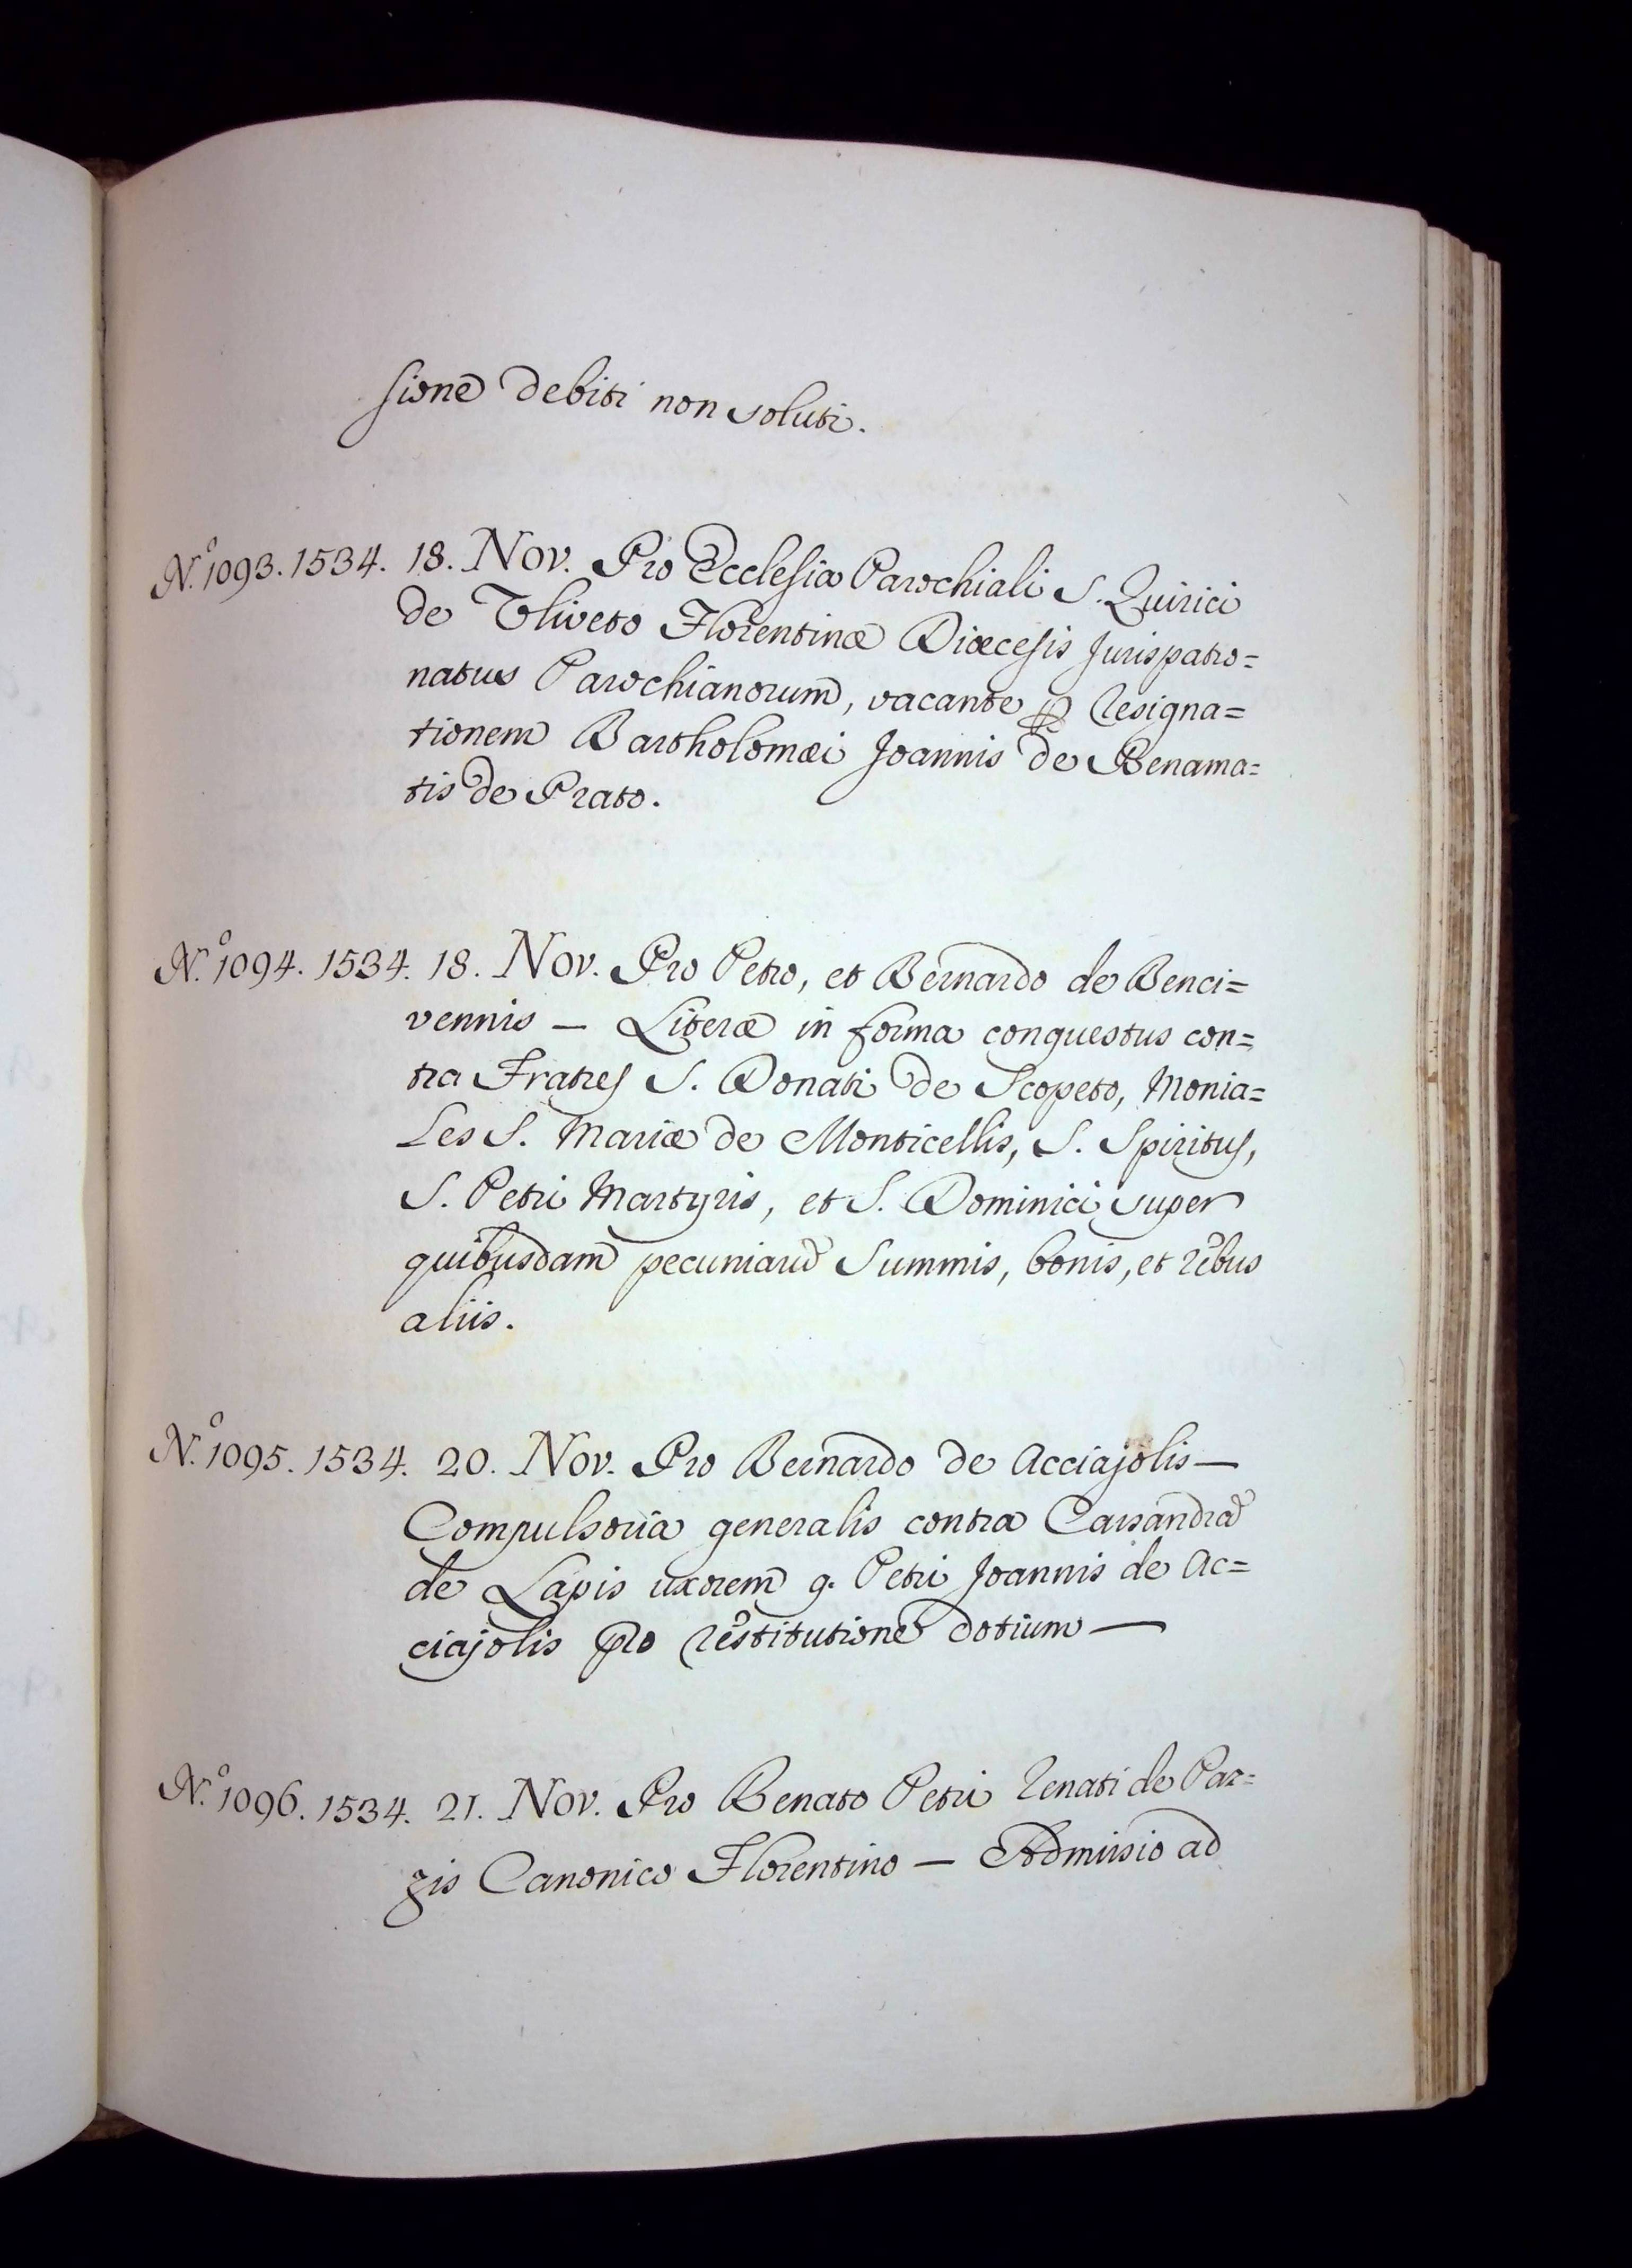 sione debiti non soluti.
N.º 1093. 1534. 18. Nov. Pro Ecclesia Parochiali S. Quirici
de Oliveto Florentinæ Diœcesis Jurispatro=
natus Parochianorum, vacante p Resigna=
tionem Bartholomæi Joannis de Benama=
tis de Prato.
N.º 1094. 1534. 18. Nov. Pro Petro, et Bernardo de Benci=
vennis — Literæ in forma conquestus con=
tra Fratres S. Donati de Scopeto, Monia=
les S. Mariæ de Monticellis, S. Spiritus,
S. Petri Martyris, et S. Dominici super
quibusdam pecuniarũ Summis, bonis, et rebus
aliis.
N.º 1095. 1534. 20. Nov. Pro Bernardo de Acciajolis —
Compulsoria generalis contra Cassandrã
de Lapis uxorem q. Petri Joannis de Ac=
ciajolis pro restitutione dotium —
N.º 1096. 1534. 21. Nov. Pro Renato Petri Renati de Paz=
zis Canonico Florentino — Admissio ad